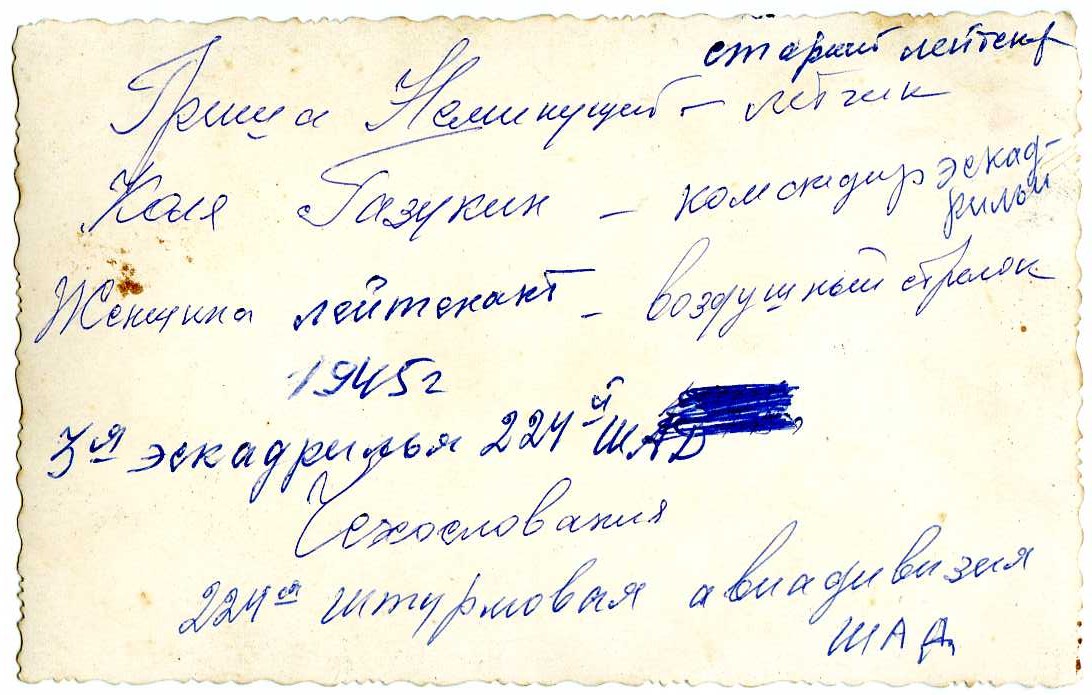 старший лейтенант
Гриша Неминущий – лётчик
Коля Газукин – командир эскад-
рильи
Женщина лейтенант – воздушный стрелок
1945г
3я эскадрилья 224й ШАД
Чехословакия
224я штурмовая авиадивизия
ШАД